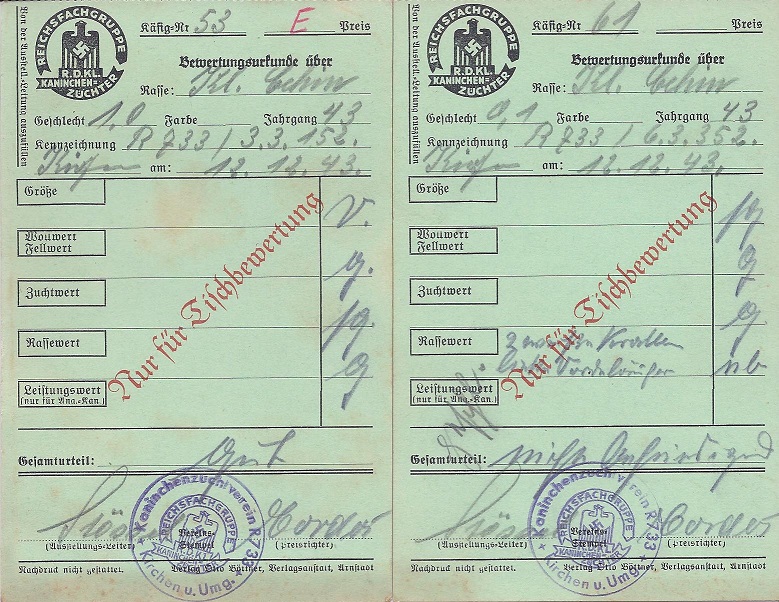 Von der Ausstell.-Leitung auszufüllen
REICHSFACHGRUPPE
R.D.KL.
KANINCHEN-
ZÜCHTER
Käfig-Nr 53 E Preis
Bewertungsurkunde über
Rasse: Kl. Chin
Geschlecht 1,0 Farbe Jahrgang 43
Kennzeichnung R 733 / 3.3.152.
am: 12.12.43.
Größe v.
Wollwert
Fellwert g.
Zuchtwert sg.
Rassewert g
Leistungswert
(nur für Ang.-Kan.)
Nur für Tischbewertung
Gesamturteil: Gut
Cordes
(Ausstellungs-Leiter) Vereins-Stempel (Preisrichter)
Kaninchenzuchtverein R 733
REICHSFACHGRUPPE
KANINCHEN-
Kirchen u. Umg.
Nachdruck nicht gestattet. Verlag Otto Böttner, Verlagsanstalt, Arnstadt
Von der Ausstell.-Leitung auszufüllen
REICHSFACHGRUPPE
R.D.KL.
KANINCHEN-
ZÜCHTER
Käfig-Nr 61 Preis
Bewertungsurkunde über
Rasse: Kl. Chin
Geschlecht 0,1 Farbe Jahrgang 43
Kennzeichnung R 733 / 6.3.352.
am: 12.12.43.
Größe sg
Wollwert
Fellwert g
Zuchtwert g
Rassewert nb
Leistungswert
(nur für Ang.-Kan.)
Nur für Tischbewertung
Gesamturteil: nicht befriedigend
Cordes
(Ausstellungs-Leiter) Vereins-Stempel (Preisrichter)
Kaninchenzuchtverein R 733
REICHSFACHGRUPPE
KANINCHEN-
Kirchen u. Umg.
Nachdruck nicht gestattet. Verlag Otto Böttner, Verlagsanstalt, Arnstadt